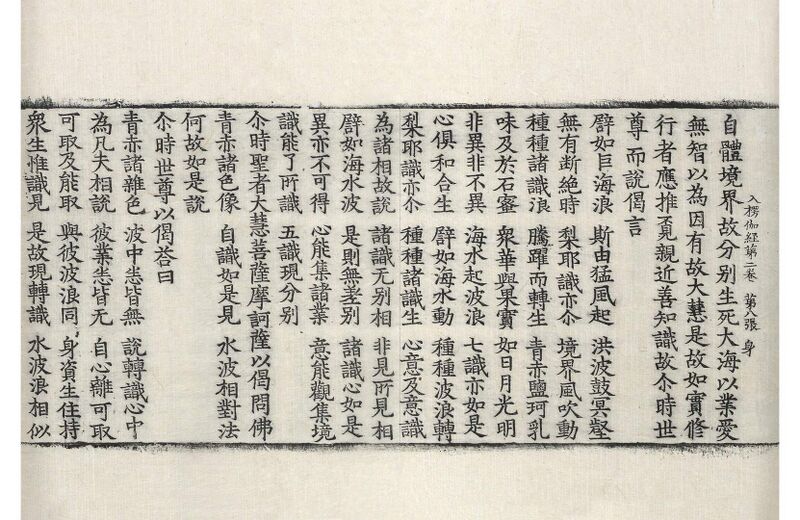 入楞伽経第二卷 第八張 身
自體境界故分別生死大海以業愛
無智以為因有故大慧是故如實修
行者應推覔親近善知識故尒時世
尊而說偈言
譬如巨海浪 斯由猛風起 洪波鼓冥壑
無有断絕時 梨耶識亦尒 境界風吹動
種種諸識浪 騰躍而轉生 青赤鹽珂乳
味及於石蜜 衆華與果實 如日月光明
非異非不異 海水起波浪 七識亦如是
心俱和合生 譬如海水動 種種波浪轉
梨耶識亦尒 種種諸識生 心意及意識
為諸相故說 諸識无別相 非見所見相
譬如海水波 是則無差别 諸識心如是
異亦不可得 心能集諸業 意能觀集境
識能了所識 五識現分别
尒時聖者大慧菩薩摩訶薩以偈問佛
青赤諸色像 自識如是見 水波相對法
何故如是說
尒時世尊以偈荅曰
青赤諸雜色 波中悉皆無 說轉識心中
為凡夫相說 彼業悉皆无 自心離可取
可取及能取 與彼波浪同 身資生住持
衆生惟識見 是故現轉識 水波浪相似